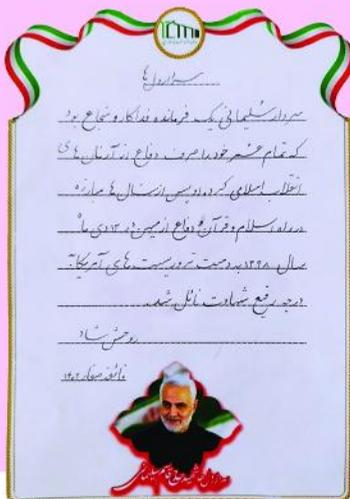 سردار دل ها
سردار سلیمانی یک فرمانده فداکار و شجاع بود
که تمام عمر خود را صرف دفاع از آرمان های
انقلاب اسلامی کرد. او پس از سال ها مبارزه
در راه اسلام و قرآن و دفاع از میهن در ۱۳ دی ماه
سال ۱۳۹۸ به دست تروریست های آمریکا به
درجه رفیع شهادت نائل شد.
روحش شاد
۱۴۰۲
سردار دل ها شهید حاج قاسم سلیمانی